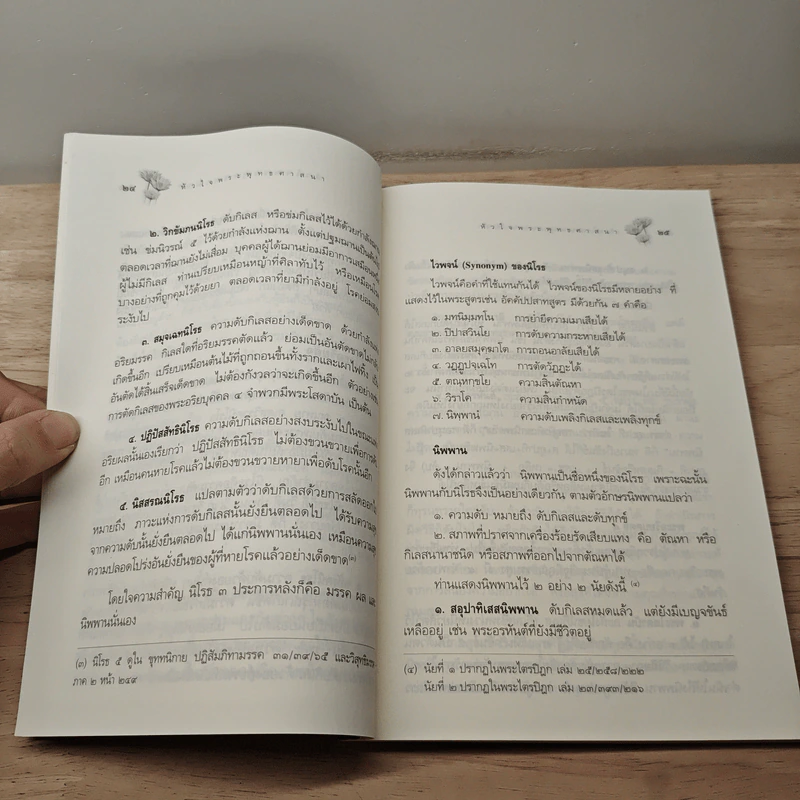 ๒๔ หัวใจพระพุทธศาสนา
๒. วิกขัมภนนิโรธ ดับกิเลส หรือข่มกิเลสไว้ได้ด้วยกำลังฌาน
เช่น ข่มนิวรณ์ ๕ ไว้ด้วยกำลังแห่งฌาน ตั้งแต่ปฐมฌานเป็นต้นไป
ตลอดเวลาที่ฌานยังไม่เสื่อม บุคคลผู้ได้ฌานย่อมมีอาการเสมือนหนึ่ง
ผู้ไม่มีกิเลส ท่านเปรียบเหมือนหญ้าที่ศิลาทับไว้ หรือเหมือนโรค
บางอย่างที่ถูกคุมไว้ด้วยยา ตลอดเวลาที่ยามีกำลังอยู่ โรคย่อมสงบ
ระงับไป
๓. สมุจเฉทนิโรธ ความดับกิเลสอย่างเด็ดขาด ด้วยกำลังแห่ง
อริยมรรค กิเลสใดที่อริยมรรคตัดแล้ว ย่อมเป็นอันตัดขาดไม่กลับ
เกิดขึ้นอีก เปรียบเหมือนต้นไม้ที่ถูกถอนขึ้นทั้งรากและเผาไฟทิ้ง เป็น
อันตัดได้สิ้นเสร็จเด็ดขาด ไม่ต้องกังวลว่าจะเกิดขึ้นอีก ตัวอย่างเช่น
การตัดกิเลสของพระอริยบุคคล ๔ จำพวกมีพระโสดาบัน เป็นต้น
๔. ปฏิปัสสัทธินิโรธ ความดับกิเลสอย่างสงบระงับไปในขณะแห่ง
อริยผลนั้นเองเรียกว่า ปฏิปัสสัทธินิโรธ ไม่ต้องขวนขวายเพื่อการดับ
อีก เหมือนคนหายโรคแล้วไม่ต้องขวนขวายหายาเพื่อดับโรคนั้นอีก
๕. นิสสรณนิโรธ แปลตามตัวว่าดับกิเลสด้วยการสลัดออกไป
หมายถึง ภาวะแห่งการดับกิเลสนั้นยั่งยืนตลอดไป ได้รับความสุข
จากความดับนั้นยั่งยืนตลอดไป ได้แก่นิพพานนั่นเอง เหมือนความสุข
ความปลอดโปร่งอันยั่งยืนของผู้ที่หายโรคแล้วอย่างเด็ดขาด(๓)
โดยใจความสำคัญ นิโรธ ๓ ประการหลังก็คือ มรรค ผล และ
นิพพานนั่นเอง
(๓) นิโรธ ๕ ดูใน ขุททนิกาย ปฏิสัมภิทามรรค ๓๑/๓๙/๖๕ และวิสุทธิมรรค
ภาค ๒ หน้า ๒๔๙
หัวใจพระพุทธศาสนา ๒๕
ไวพจน์ (Synonym) ของนิโรธ
ไวพจน์คือคำที่ใช้แทนกันได้ ไวพจน์ของนิโรธมีหลายอย่าง ที่
แสดงไว้ในพระสูตรเช่น อัคคัปปสาทสูตร มีด้วยกัน ๗ คำคือ
๑. มทนิมฺมทโน การย่ำยีความเมาเสียได้
๒. ปิปาสวินโย การดับความกระหายเสียได้
๓. อาลยสมุคฺฆาโต การถอนอาลัยเสียได้
๔. วฏฺฏูปจฺเฉโท การตัดวัฏฏะได้
๕. ตณฺหกฺขโย ความสิ้นตัณหา
๖. วิราโค ความสิ้นกำหนัด
๗. นิพฺพานํ ความดับเพลิงกิเลสและเพลิงทุกข์
นิพพาน
ดังได้กล่าวแล้วว่า นิพพานเป็นชื่อหนึ่งของนิโรธ เพราะฉะนั้น
นิพพานกับนิโรธจึงเป็นอย่างเดียวกัน ตามตัวอักษรนิพพานแปลว่า
๑. ความดับ หมายถึง ดับกิเลสและดับทุกข์
๒. สภาพที่ปราศจากเครื่องร้อยรัดเสียบแทง คือ ตัณหา หรือ
กิเลสนานาชนิด หรือสภาพที่ออกไปจากตัณหาได้
ท่านแสดงนิพพานไว้ ๒ อย่าง ๒ นัยดังนี้ (๔)
๑. สอุปาทิเสสนิพพาน ดับกิเลสหมดแล้ว แต่ยังมีเบญจขันธ์
เหลืออยู่ เช่น พระอรหันต์ที่ยังมีชีวิตอยู่
(๔) นัยที่ ๑ ปรากฏในพระไตรปิฎก เล่ม ๒๕/๒๕๘/๒๒๒
นัยที่ ๒ ปรากฏในพระไตรปิฎก เล่ม ๒๓/๓๙๓/๒๑๖